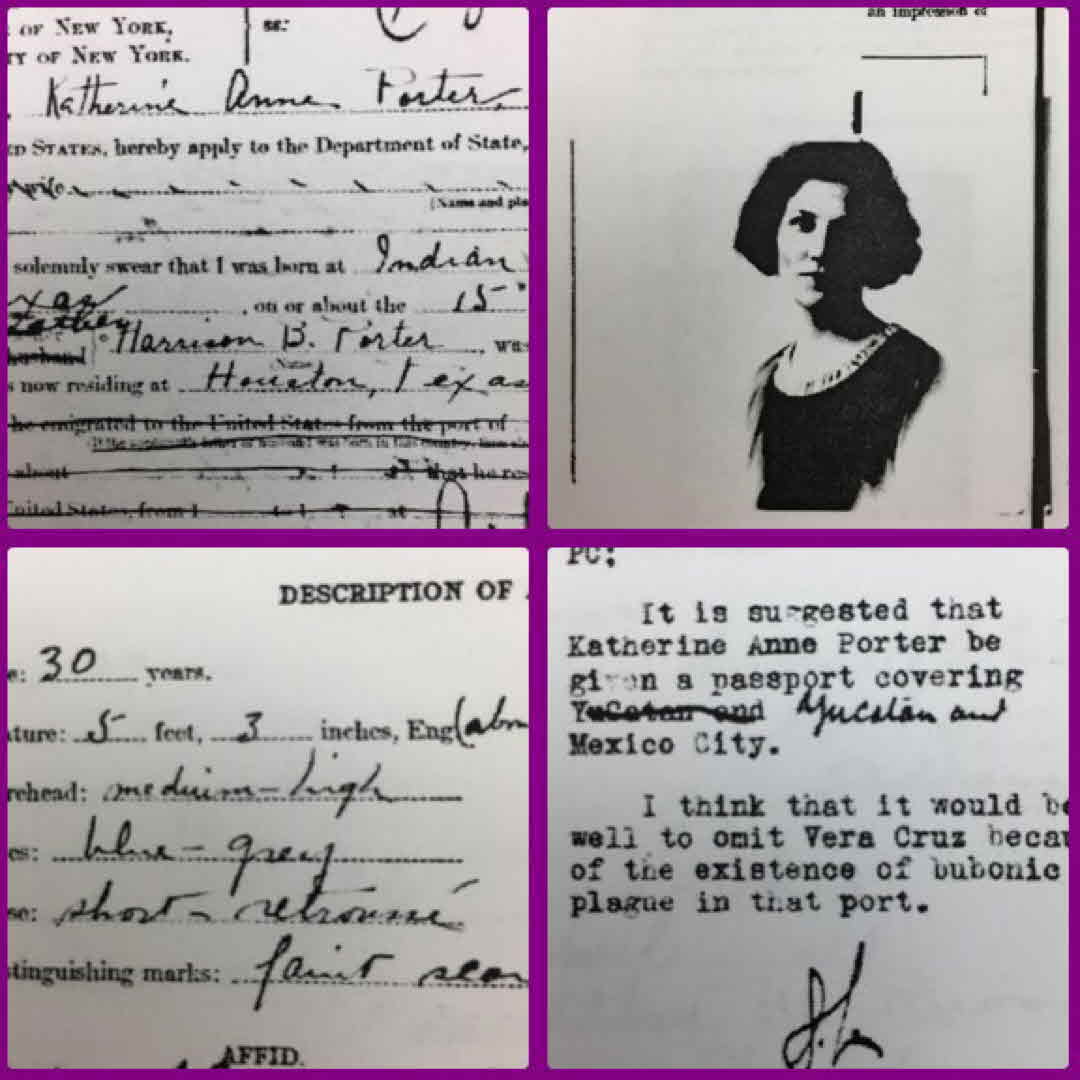 OF NEW YORK,
SS:
TY OF NEW YORK.
Katherine Anne Porter,
ED STATES, hereby apply to the Department of State,
wife
(Name and pla
solemnly swear that I was born at Indian
xas, on or about the 15
father
husband Harrison B. Porter, was
Name
s now residing at Houston, Texas
he emigrated to the United States from the port of
about that he res
United States, from 1 to 1 at
an impression of
DESCRIPTION OF
e: 30 years.
ture: 5 feet, 3 inches, Eng(abo
rehead: medium-high
es: blue-grey
se: short-retroussé
stinguishing marks: faint scar
AFFID.
PC:
It is suggested that
Katherine Anne Porter be
given a passport covering
YuCatan and Yucatan and
Mexico City.
I think that it would be
well to omit Vera Cruz becau
of the existence of bubonic
plague in that port.